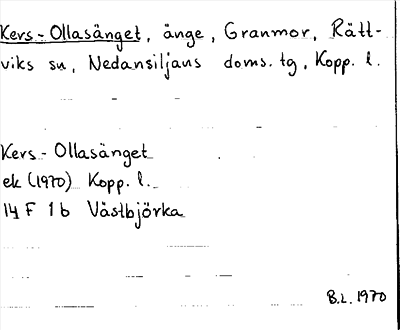 Kers-Ollasänget, änge, Granmor, Rätt-
viks sn, Nedansiljans doms. tg, Kopp. l.
Kers-Ollasänget
ek (1970) Kopp. l.
14 F 1 b Västbjörka
B.L. 1970